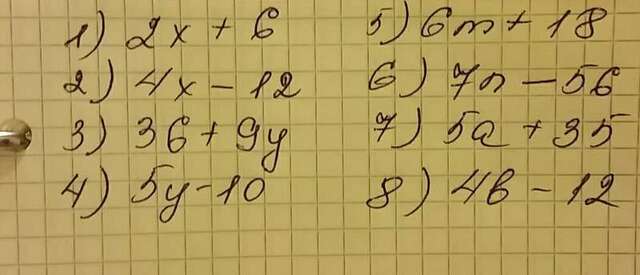 1) 2x + 6
2) 4x - 12
3) 36 + 9y
4) 5y - 10
5) 6m + 18
6) 7n - 56
7) 5a + 35
8) 4b - 12